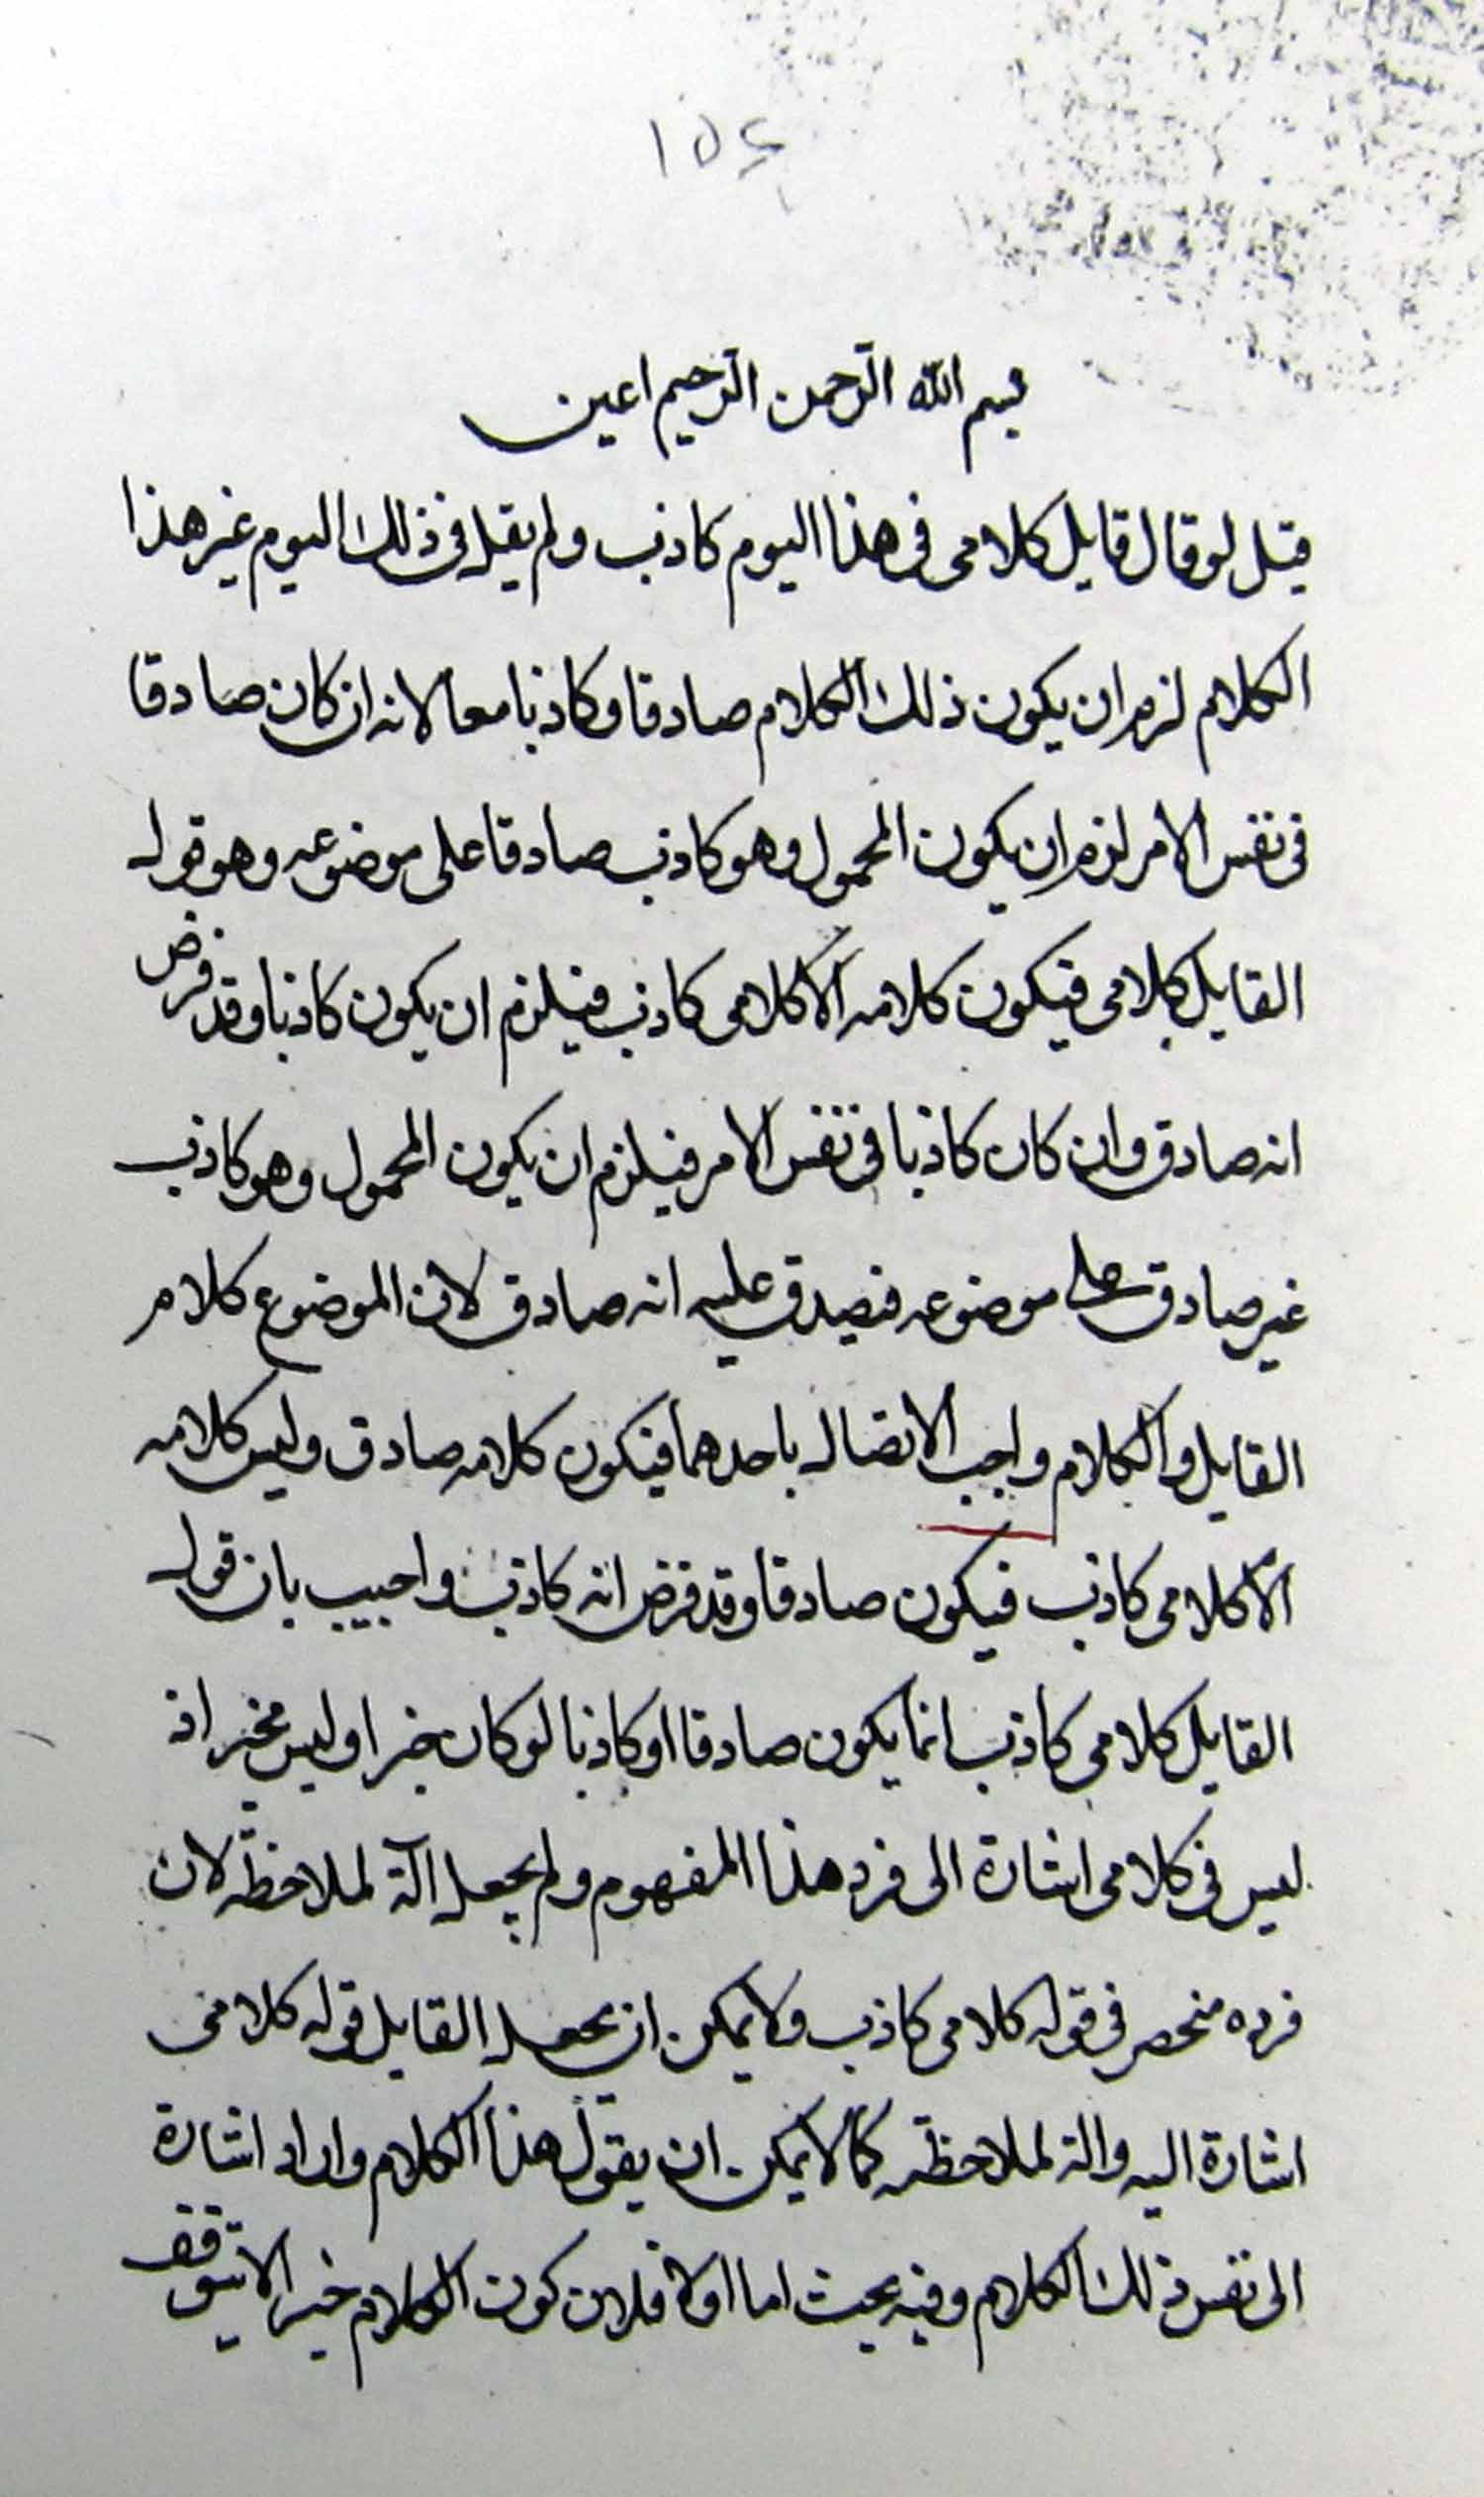 ١٥٤
بسم الله الرحمن الرحيم اعين
قيل لو قال قايل كلامى فى هذا اليوم كاذب ولم يقل فى ذلك اليوم غير هذا
الكلام لزم ان يكون ذلك الكلام صادقا وكاذبا معا لانه ان كان صادقا
فى نفس الامر لزم ان يكون المحمول وهو كاذب صادقا على موضوعه وهو قول
القايل كلامى فيكون كلامه الا كلامى كاذب فيلزم ان يكون كاذبا وقد فرض
انه صادق وان كان كاذبا فى نفس الامر فيلزم ان يكون المحمول وهو كاذب
غير صادق على موضوعه فيصدق عليه انه صادق لان الموضوع كلام
القايل والكلام واجب الاتصال باحدهما فيكون كلامه صادق وليس كلامه
الا كلامى كاذب فيكون صادقا وقد فرض انه كاذب واجيب بان قول
القايل كلامى كاذب انما يكون صادقا او كاذبا لو كان خبرا وليس بخبر اذ
ليس فى كلامى اشارة الى فرد هذا المفهوم ولم يجعل آلة لملاحظته لان
فرده منحصر فى قوله كلامى كاذب ولا يمكن ان يجعل القايل قوله كلامى
اشارة اليه والة لملاحظته كما لا يمكن ان يقول هذا الكلام واراد اشارة
الى نفس ذلك الكلام وفيه بحث اما اولا فلان كون الكلام خبرا لا يتوقف